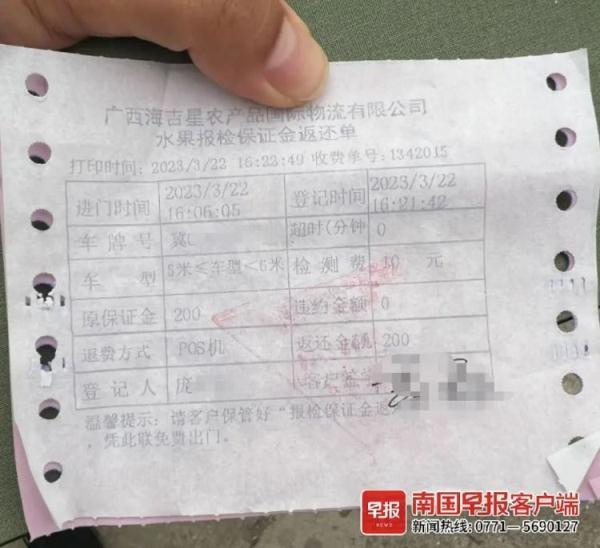 广西海吉星农产品国际物流有限公司
水果报检保证金返还单
打印时间: 2023/3/22 16:22:49 收费单号: 1342015
进门时间 2023/3/22 16:05:05 登记时间 2023/3/22 16:21:42
车牌号 冀 超时(分钟 0
车 型 5米≤车型<6米 检测费 10 元
原保证金 200 违约金额 0
退费方式 POS机 返还金额 200
登记人 庞 客户签字
温馨提示: 请客户保管好“报检保证金返
,凭此联免费出门。
早报
NEWS
南国早报客户端
新闻热线: 0771—5690127